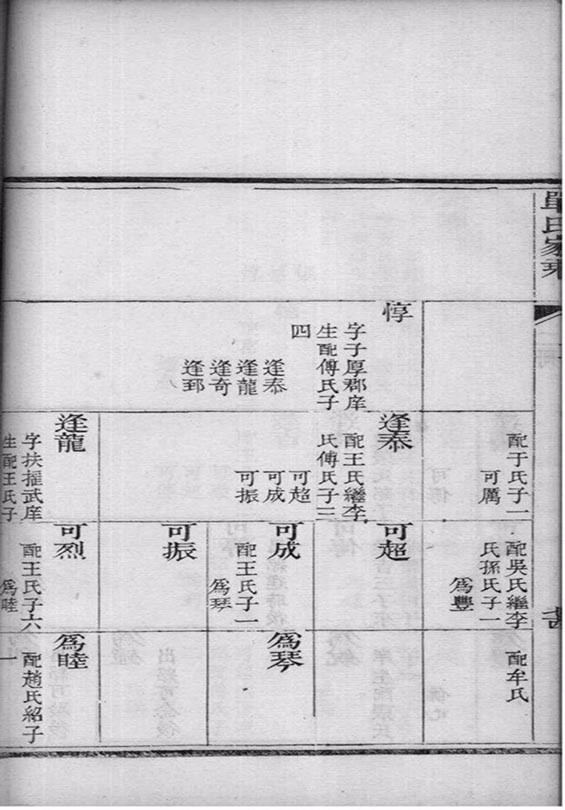 單氏家乘
惇
字子厚郡庠
生配傅氏子
四
逢泰
逢龍
逢奇
逢郅
配于氏子一
可厲
逢泰
配王氏繼李
氏傅氏子三
可超
可成
可振
逢龍
字扶搖武庠
生配王氏子
配吳氏繼李
氏孫氏子一
爲豐
可超
可成
配王氏子一
爲琴
可振
可烈
配王氏子六
爲睦
配牟氏
爲琴
爲睦
配趙氏紹子
一